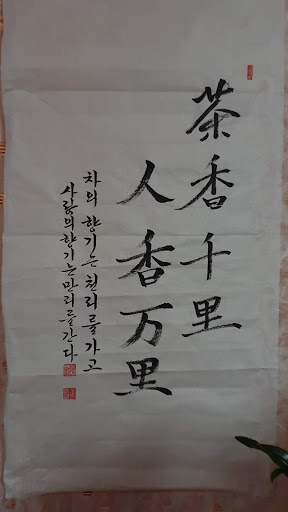 茶香千里
人香万里
차의 향기는 천리를 가고
사람의 향기는 만리를 간다